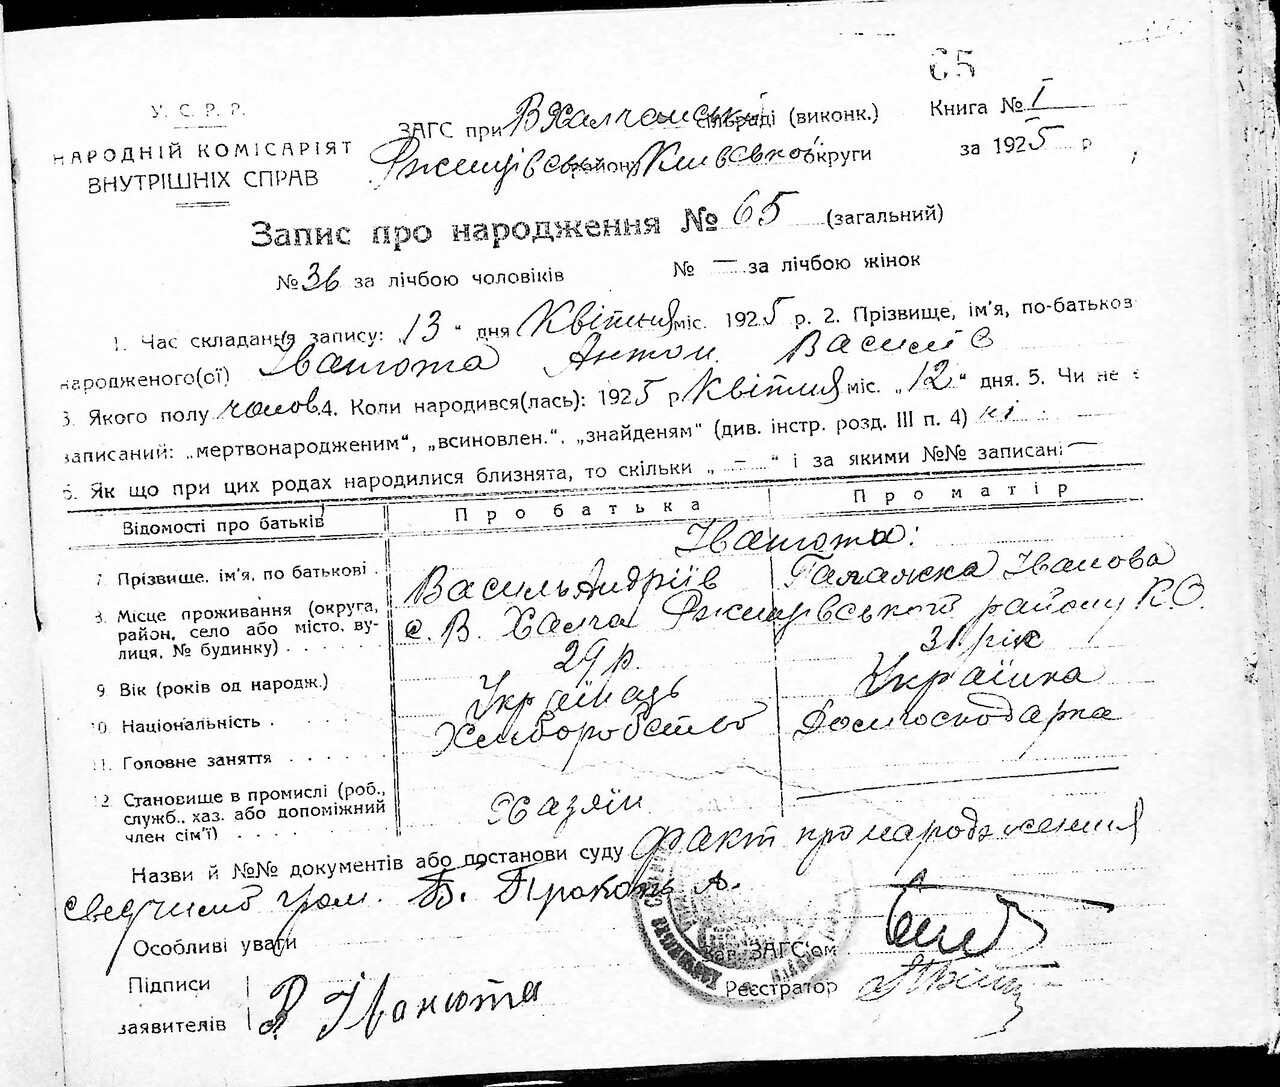 65
У. С. Р. Р.
НАРОДНІЙ КОМІСАРІЯТ
ВНУТРІШНІХ СПРАВ
ЗАГС при В Халчанській сільраді (виконк.)
Ржищівськ району Київської округи
Книга № I
за 1925 р
Запис про народження № 65 (загальний)
№ 36 за лічбою чоловіків № — за лічбою жінок
1. Час складання запису: „13“ дня Квітня міс. 1925 р. 2. Прізвище, ім'я, по-батьков
народженого(ої) Іванюта Антон Василів
3. Якого полу чолов. 4. Коли народився(лась): 1925 р Квітня міс. „12“ дня. 5. Чи не є
записаний: „мертвонародженим“, „всиновлен.“, „знайденям“ (див. інстр. розд. III п. 4) ні
6. Як що при цих родах народилися близнята, то скільки „ — “ і за якими №№ записані —
Відомості про батьків Про батька Про матір
Іванюта:
7. Прізвище, ім'я, по батькові . Василь Андріїв Галажка Іванова
8. Місце проживання (округа, район, село або місто, ву-
лиця, № будинку) . . . . . . с. В. Халча Ржищівського району К.О.
9. Вік (років од народж.) 29 р. 31 рік
10. Національність . . . . . . Українець Українка
11. Головне заняття . . . . . . Хліборобство Домгосподарка
12. Становище в промислі (роб.,
служб., хаз. або допоміжний
член сім'ї) . . . . . . . Хазяїн
Назви й №№ документів або постанови суду факт про народження
сведчимо гром. Б. Прокопь А.
Особливі уваги
Підписи
заявителів В Іванюта
Зав. ЗАГС'ом
Реєстратор